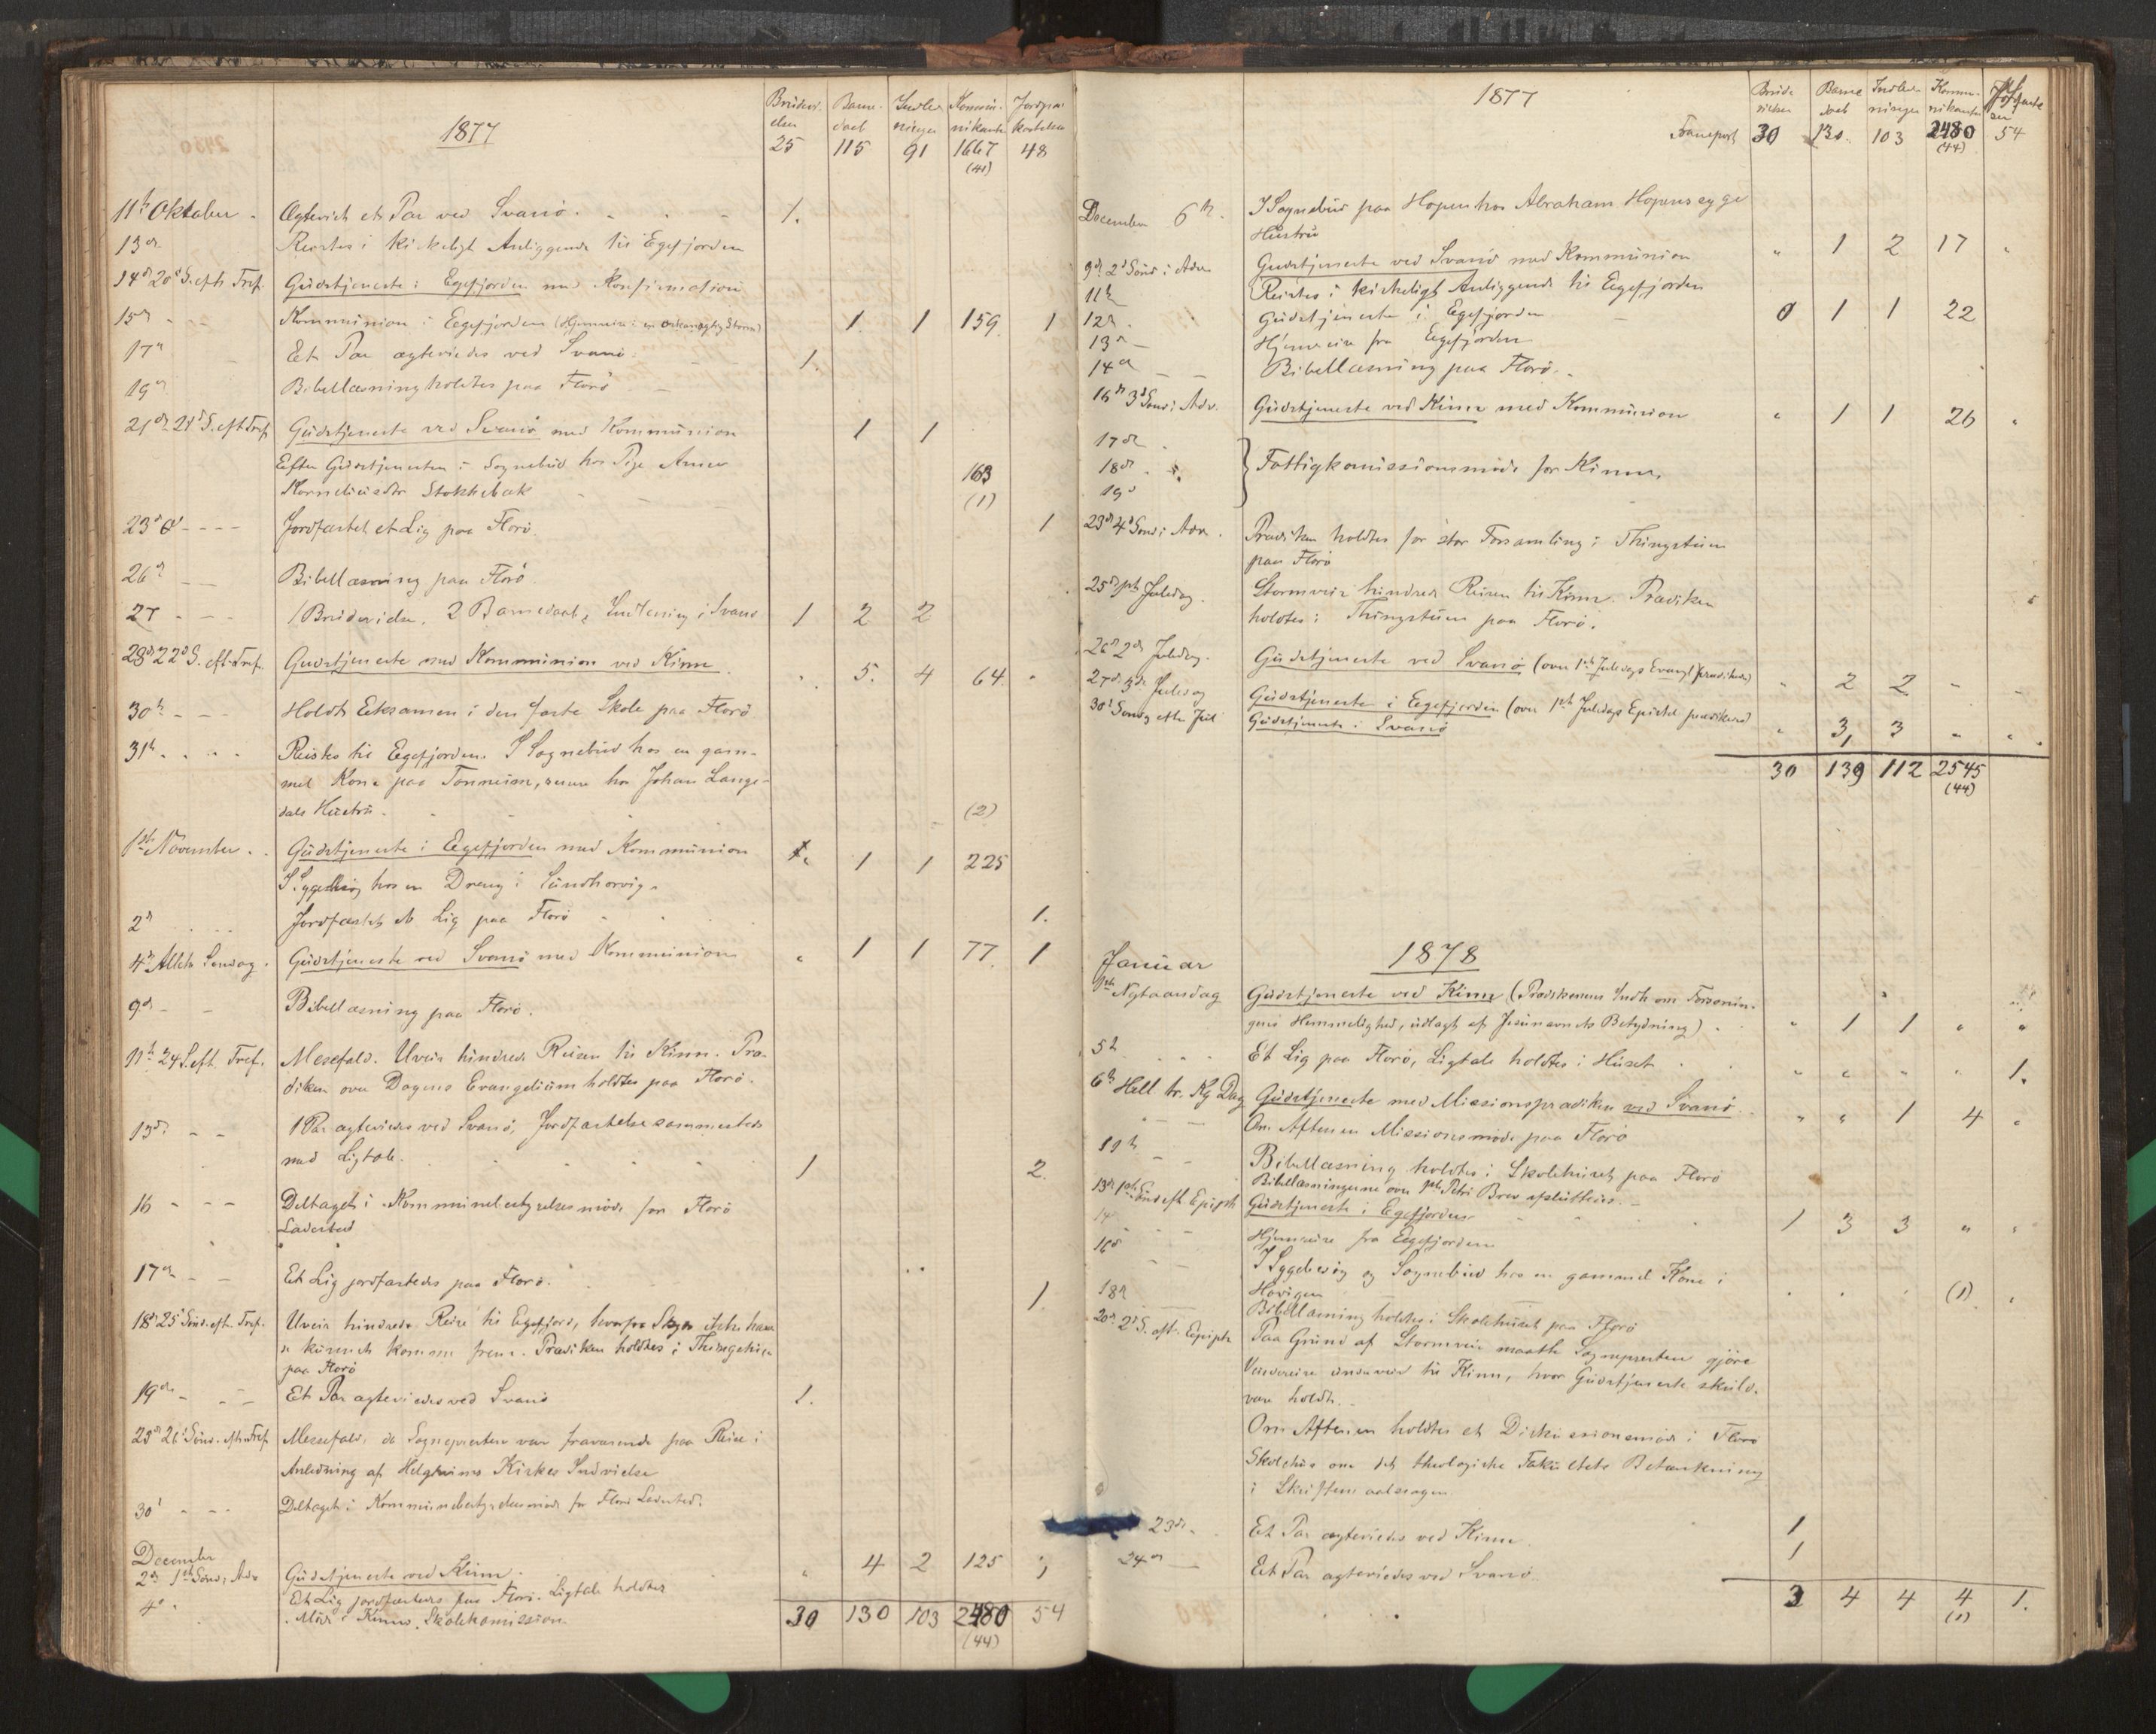 1877
Brüdevi- Barne- Indled- Kommu- Jordpaa-
elser daab ninger nikanter kastelser
25 115 91 1667 48
(41)
11te Oktober - Ægteviet et Par ved Svanö. 1.
13de Reistes i kirkeligt Anliggende til Eegefjorden
14de 20de S. efter Tref. Gudstjeneste i Eegefjorden med Konfirmation
15de Kommunion i Eegefjorden (Hjemreise i en Storm) 1. 1 159. 1
17de Et Par ægteviedes ved Svanö. 1.
19de Bibellæsning holdtes paa Florö
21de 21de S. eft. Tref. Gudstjeneste ved Svanö med Kommunion 1 1
Efter Gudstjenesten i Sognebud hos Pige Anne 163
Korneliusdtr Stokkebæk (1)
23de Jordfæstet et Lig paa Florö. 1
26de Bibellæsning paa Florö.
27 1 Brudevielse, 2 Barnedaab, Indledning i Svanö 1 2 2
28de 22de S. eft. Tref. Gudstjeneste med Kommunion ved Kinn. 5. 4 64
30te Holdt Eksamen i den faste Skole paa Florö
31te Reistes til Eegefjorden. I Sognebud hos en gam-
mel Kone paa Tonheim, samme hos Johan Lange-
dals Hustru. (2)
1ste November. Gudstjeneste i Eegefjorden med Kommunion 1 1 225
I Sygebesög hos en Dreng i Sundhorvig.
2de Jordfæstet et Lig paa Florö 1.
4de Alleh. Söndag. Gudstjeneste ved Svanö med Kommunion 1 1 77 1
9de Bibellæsning paa Florö.
11te 24 S. eft. Tref. Messefald. Uveir hindrede Reisen til Kinn. Præ-
diken over Dagens Evangelium holdtes paa Florö.
13de 1 Par ægteviedes ved Svanö, Jordfæstelse sammesteds
med Ligtale. 1 2.
16 Deltaget i Kommunebestyrelsesmöde for Florö
Ladested
17de Et Lig jordfæstedes paa Florö. 1
18de 25de Sönd. eft. Tref. Uveir hindrede Reise til Eegefjord, hvorfra Skyds ikke heller
kunde komme frem. Prædiken holdtes i Thingstuen
paa Florö
19de Et Par ægteviedes ved Svanö 1.
25de 26de Sönd. eft. Tref. Messefald, da Sognepresten var fraværende paa Reise i
Anledning af Helgheims Kirkes Indvielse
30te Deltaget i Kommunebestyrelsesmöde for Florö Ladested.
December
2de 1ste Sönd. i Adv. Gudstjeneste ved Kinn. 4 2 125
4de Et Lig jordfæstedes paa Florö. Ligtale holdtes
Möde i Kinns Skolekomission 30 130 103 2480 54
(44)
1877
Brüde- Barne- Indled- Kommu- Jordfæstel-
vielser daab ninger nikanter ser
Transport 30 130 103 2480 54
(44)
December 6te. I Sognebud paa Hopen hos Abraham Hopens syge
Hustru
9de 2de Sönd. i Adv. Gudstjeneste ved Svanö med Kommunion 1 2 17
11te Reistes i kirkeligt Anliggende til Eegefjorden
12te. Gudstjeneste i Eegefjorden 0 1 1 22
13de Hjemreise fra Eegefjorden
14de Bibellæsning paa Florö.
16de 3de Sönd. i Adv. Gudstjeneste ved Kinn med Kommunion 1 1 26
17de
18de Fattigkomissionsmöde for Kinn.
19de
23de 4de Sönd. i Adv. Prædiken holdtes for stor Forsamling i Thingstuen
paa Florö
25de 1ste Juledag. Stormveir hindrede Reisen til Kinn. Prædiken
holdtes i Thingstuen paa Florö.
26de 2den Juledag. Gudstjeneste ved Svanö (over 1ste Juledags Evangl prædikedes) 2 2 -
27de 3de Juledag Gudstjeneste i Eegefjorden (over 1ste Juledags Epistel prædikedes)
30te Sönd. efter Jul Gudstjeneste i Svanö 3, 3
30 139 112 2545
(44)
1878
Januar
1ste Nytaarsdag Gudstjeneste ved Kinn (Prædikenens Indh. om Forsonin-
gens Hemmelighed, udlagt af Jesunavnets Betydning). 1 1
5te Et Lig paa Florö, Ligtale holdtes i Huset 1.
6te Hell. tr. Kg Dag Gudstjeneste med Missionsprædiken ved Svanö. 1 4
Om Aftenen Missionsmöde paa Florö
11te Bibellæsning holdtes i Skolehuset paa Florö
Bibellæsningerne over 1ste Petri Brev afsluttedes.
13de 1ste Sönd. eft. Epiph Gudstjeneste i Eegefjorden 1 3 3
14 Hjemreise fra Eegefjorden
16de I Sygebesög og Sognebud hos en gammel Kone i
Hovigen (1)
18de Bibellæsning holdtes i Skolehuset paa Florö
20de 2de S. eft. Epiph. Paa Grund af Stormveir maatte Sognepresten gjöre
Vendereise underveis til Kinn, hvor Gudstjeneste skulde
være holdt.
Om Aftenen holdtes et Diskussionsmöde i Florö
Skolehus om det theologiske Fakultets Betænkning
i Skriftemaalssagen.
23de. Et Par ægteviedes ved Kinn. 1
24de Et Par ægteviedes ved Svanö. 1
3 4 4 4 1.
(1)